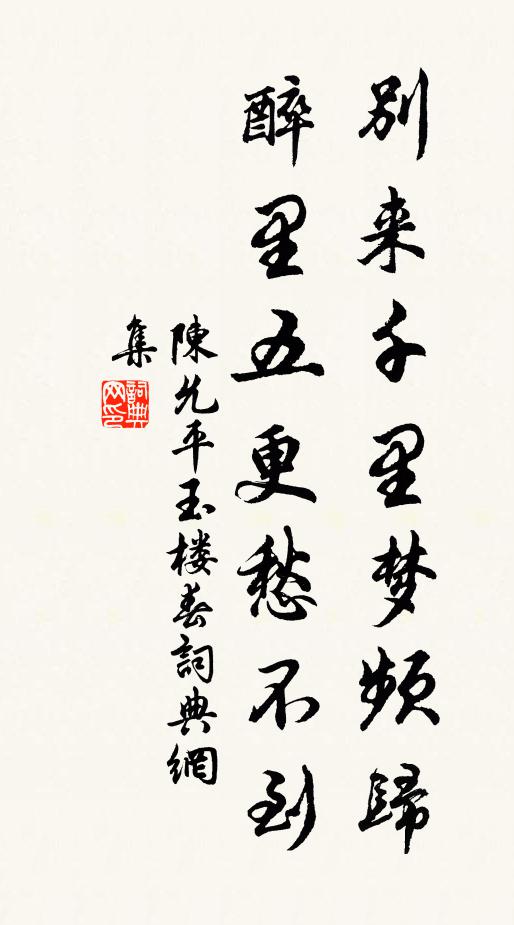 別来千里梦頻歸
醉里五更愁不到
陳允平玉楼春詞典網
集
詞典
网印